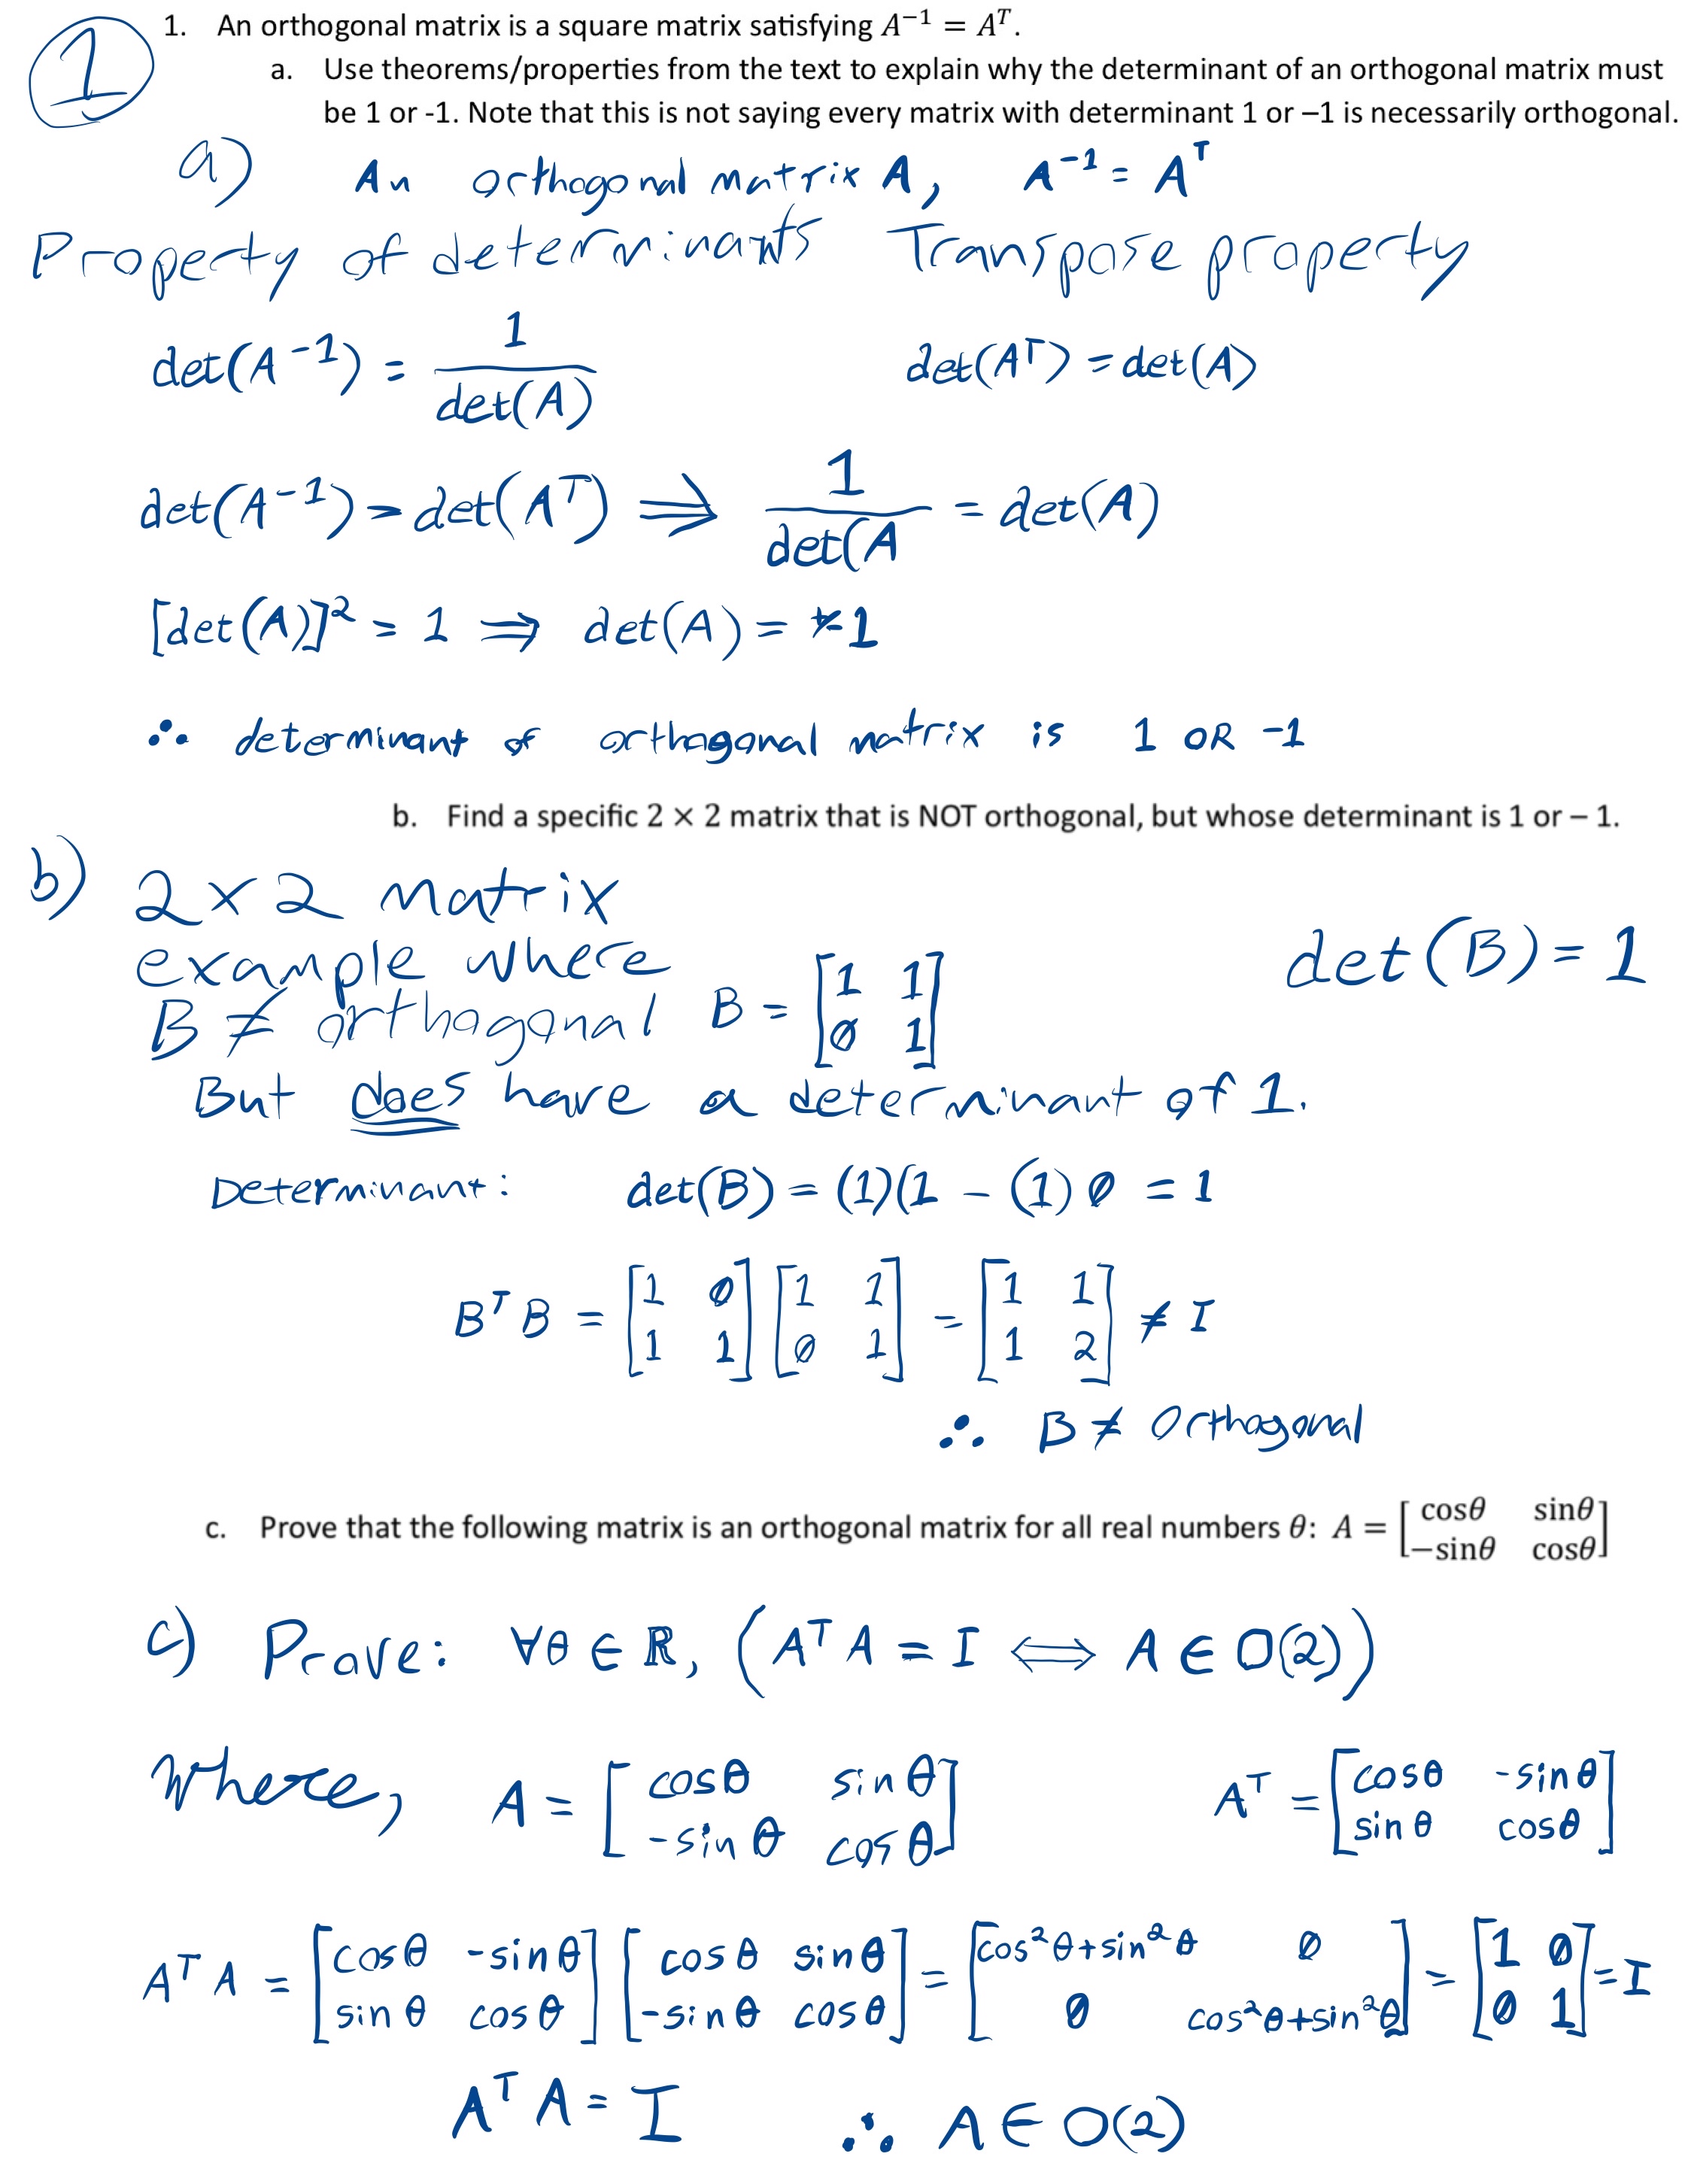 ①
1. An orthogonal matrix is a square matrix satisfying A⁻¹ = Aᵀ.
a. Use theorems/properties from the text to explain why the determinant of an orthogonal matrix must
be 1 or -1. Note that this is not saying every matrix with determinant 1 or –1 is necessarily orthogonal.
a) An orthogonal matrix A, A⁻¹ = Aᵀ
Property of determinants Transpose property
det(A⁻¹) = 1/det(A) det(Aᵀ) = det(A)
det(A⁻¹) = det(Aᵀ) ⟹ 1/det(A = det(A)
[det(A)]² = 1 ⟹ det(A) = ±1
∴ determinant of orthagonal matrix is 1 OR -1
b. Find a specific 2 × 2 matrix that is NOT orthogonal, but whose determinant is 1 or – 1.
b) 2×2 matrix
example where det(B) = 1
B ≠ orthagonal B = [1 1; 0 1]
But does have a determinant of 1.
Determinant: det(B) = (1)(1 - (1) 0 = 1
BᵀB = [1 0; 1 1] [1 1; 0 1] = [1 1; 1 2] ≠ I
∴ B ≠ Orthagonal
c. Prove that the following matrix is an orthogonal matrix for all real numbers θ: A = [cosθ sinθ; −sinθ cosθ]
c) Prove: ∀θ ∈ ℝ, (AᵀA = I ⟺ A ∈ O(2))
Where, A = [cosθ sinθ; -sinθ cosθ] Aᵀ = [cosθ -sinθ; sinθ cosθ]
AᵀA = [cosθ -sinθ; sinθ cosθ] [cosθ sinθ; -sinθ cosθ] = [cos²θ+sin²θ 0; 0 cos²θ+sin²θ] = [1 0; 0 1] = I
AᵀA = I ∴ A ∈ O(2)